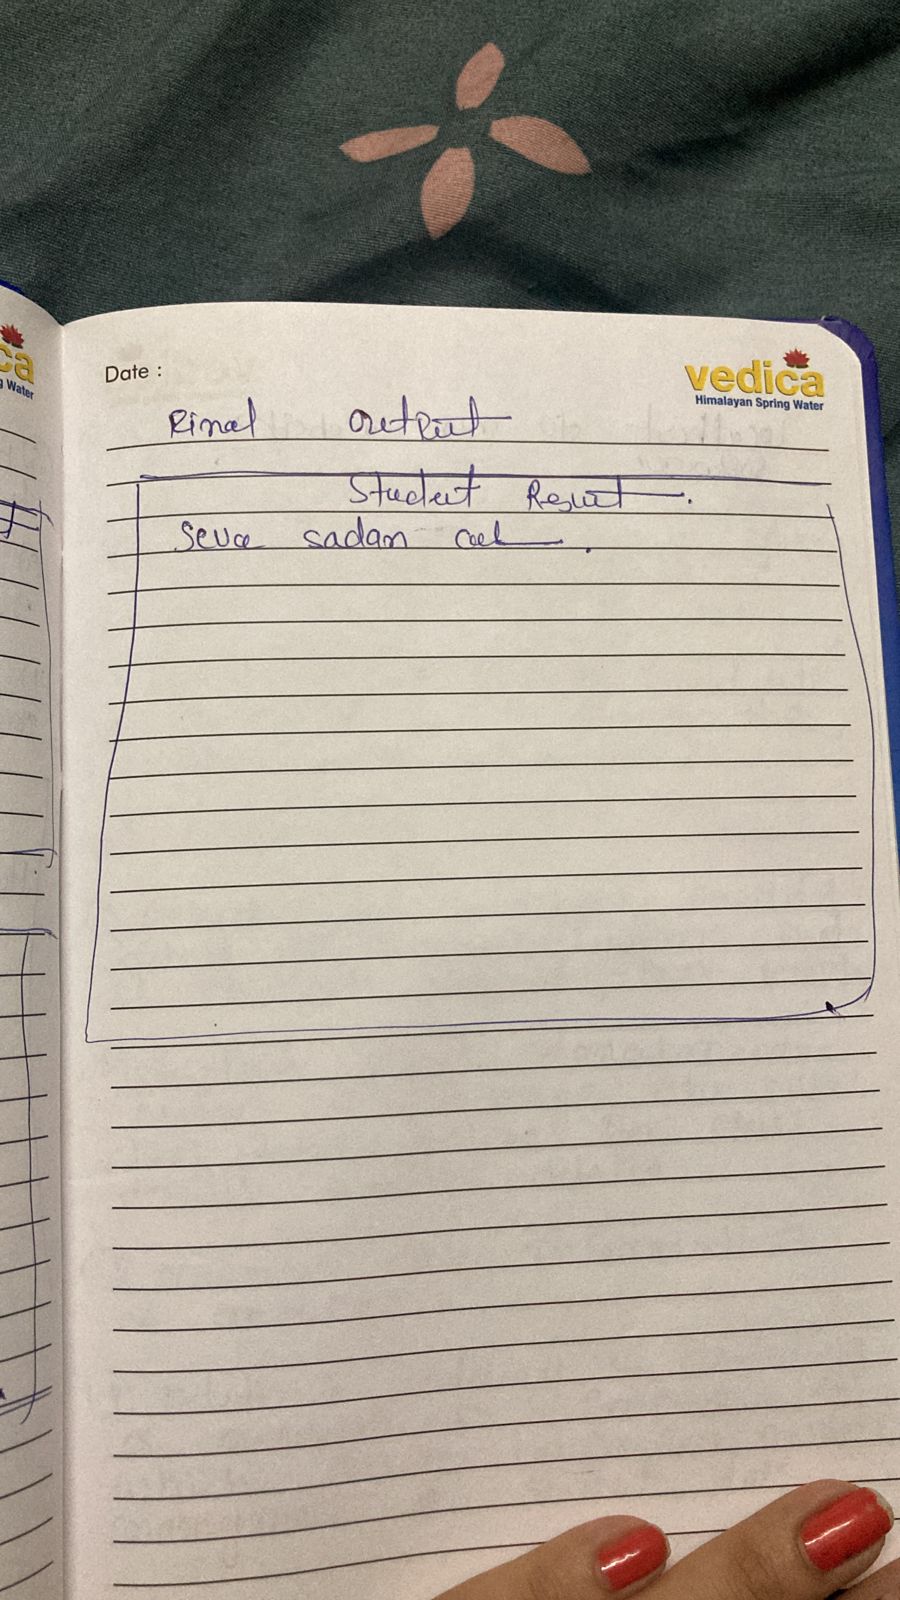 ca
g Water
Date :
vedica
Himalayan Spring Water
Final Output
Student Result.
Seva sadan